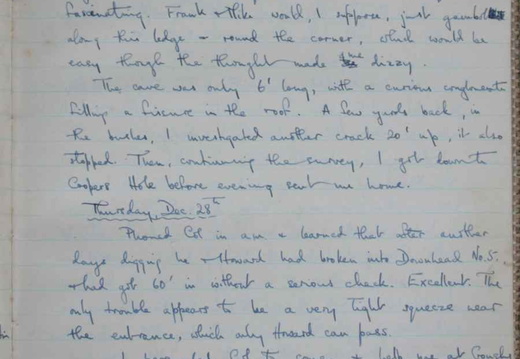 fascinating. Frank & Mike would, I suppose, just gambol
along this ledge & round the corner, which would be
easy though the thought made me dizzy.
The cave was only 6' long, with a curious conglomerate
filling a fissure in the roof. A few yards back, in
the bushes, I investigated another crack 20' up, it also
stopped. Then, continuing the survey, I got down to
Coopers Hole before evening sent me home.
Thursday, Dec. 28th
Phoned Col in a.m. & learned that after another
days digging he & Howard had broken into Downhead No.5.,
& had got 60' in without a serious check. Excellent. The
only trouble appears to be a very tight squeeze near
the entrance, which only Howard can pass.
Col to come &